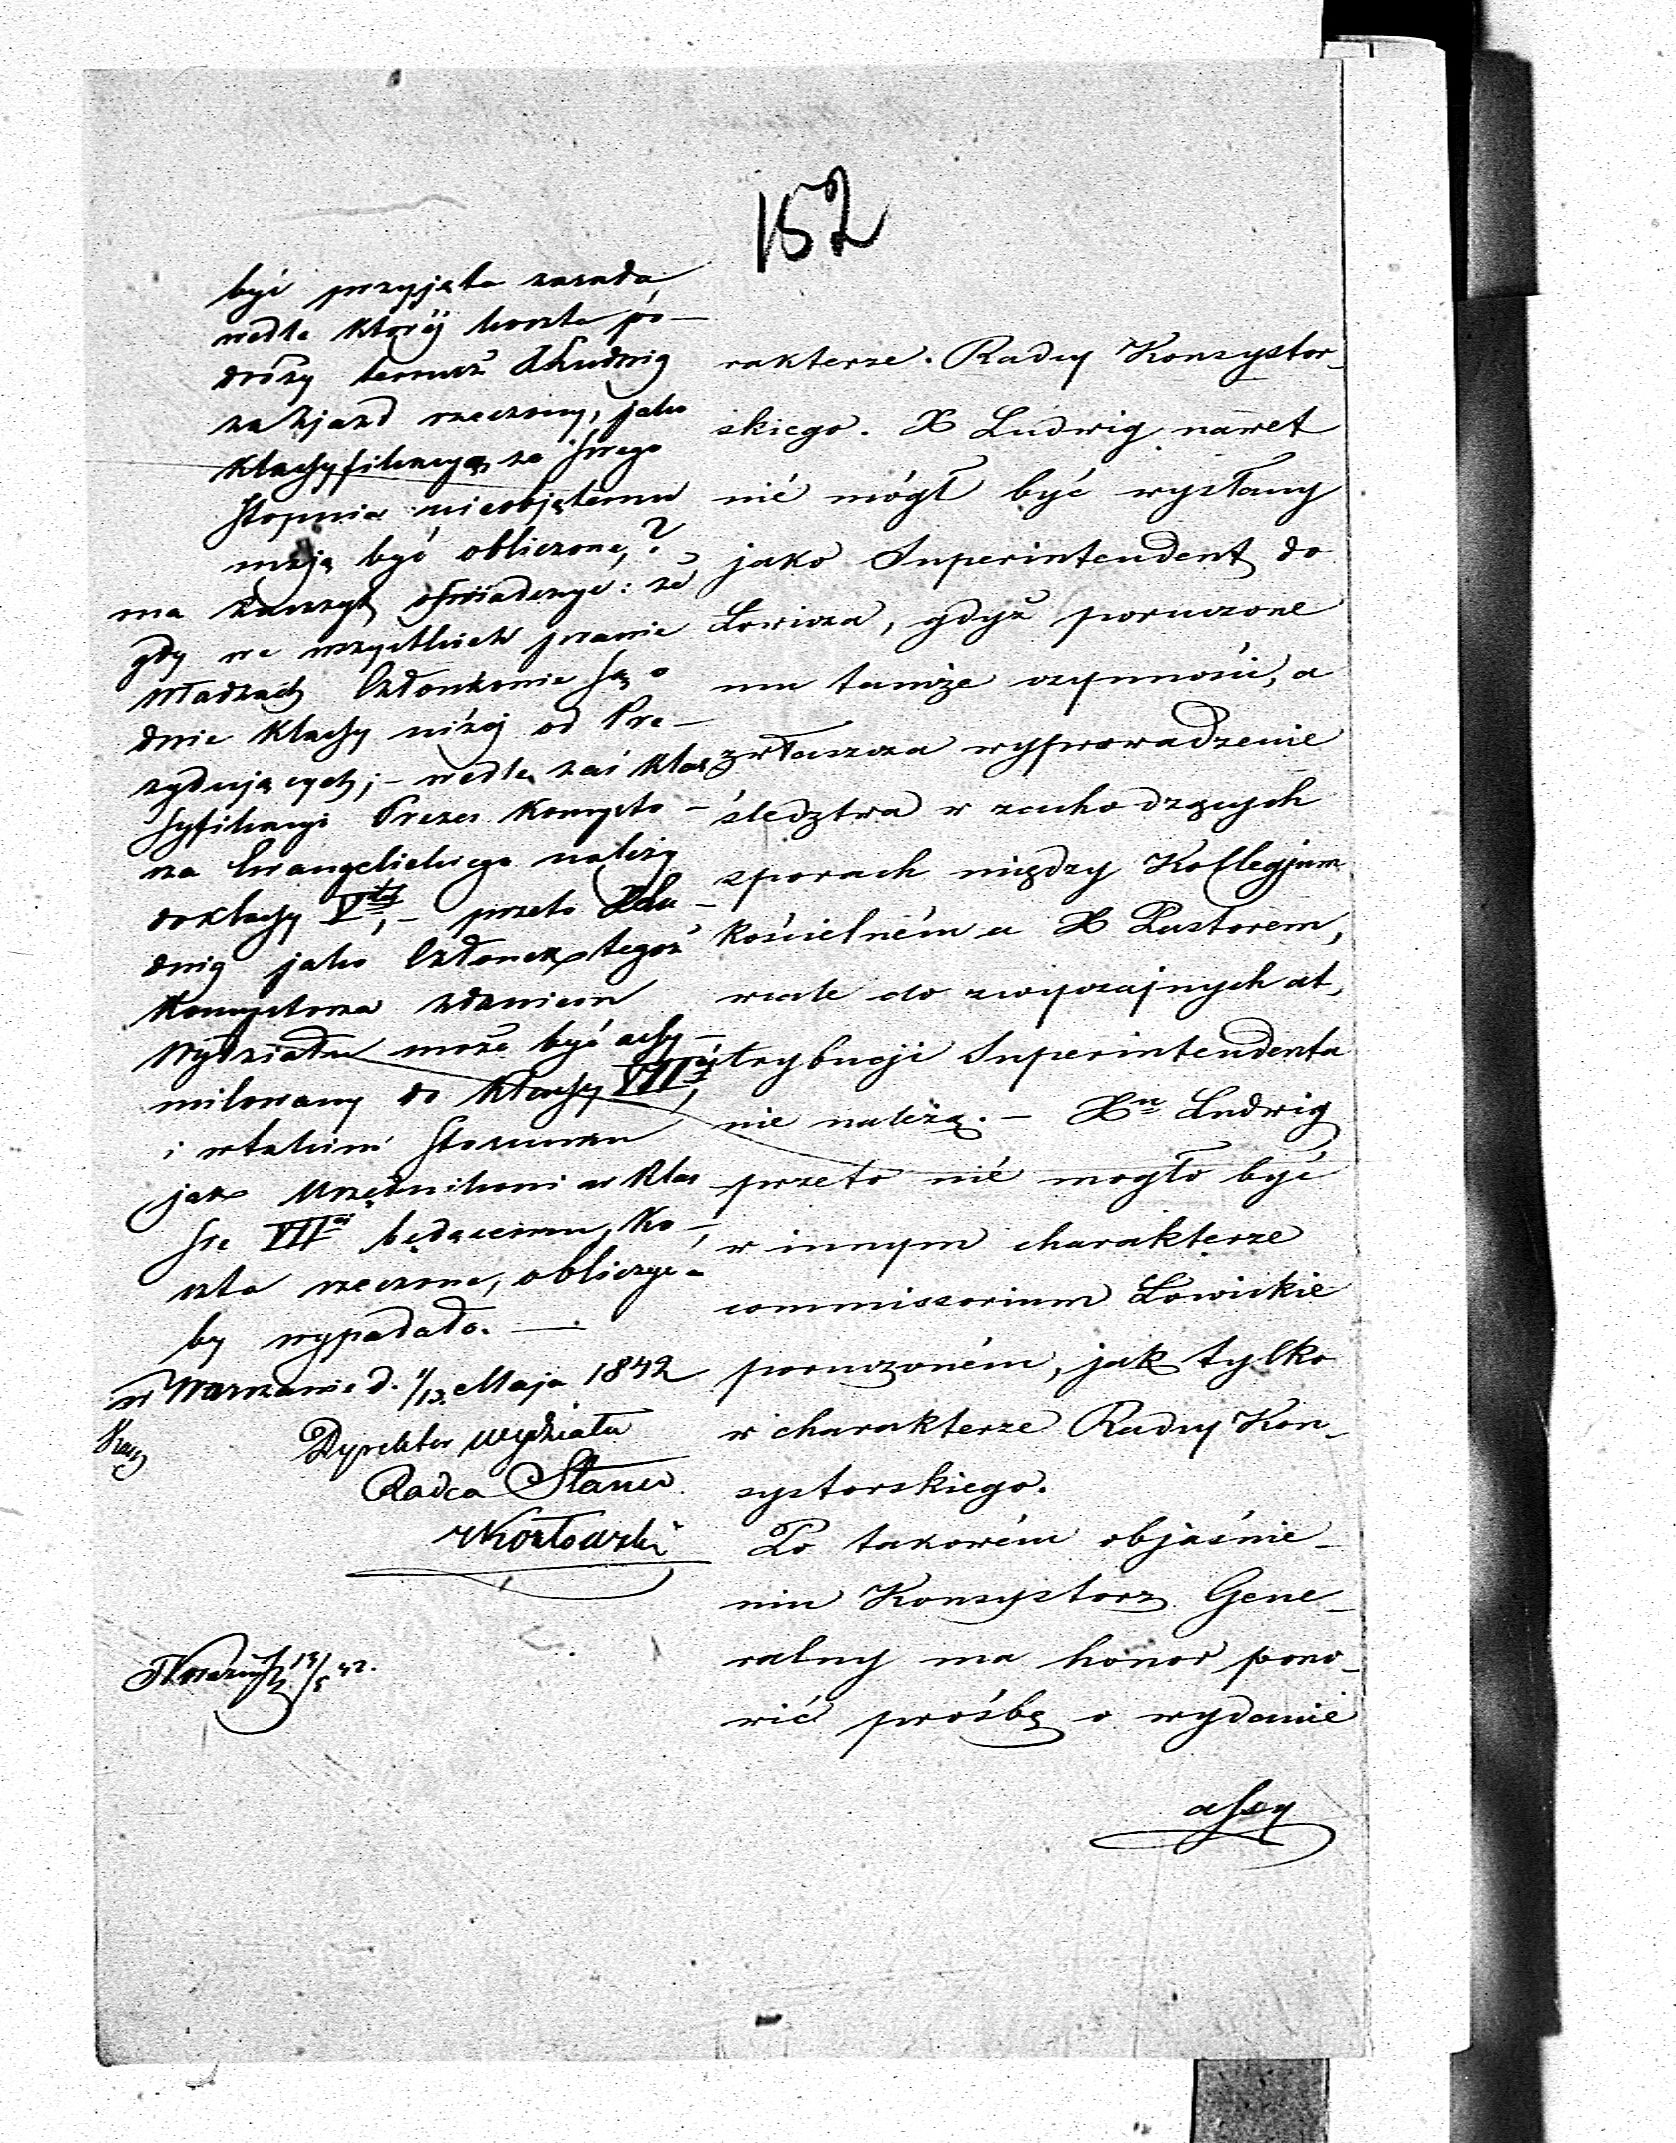 152
być przyjęta zasada,
wedle któréj koszta po-
dróży temuż X Ludwig
za zjazd rzeczony, jako
klassyfikacyą co do swego
stopnia nieobjętemu
mają być obliczone,?
ma zaszczyt oświadczyć: że
gdy we wszystkich prawie
Władzach Członkowie są o
dwie klassy niżéj od Pre-
zydujących; – wedle zaś klas
syfikacyi Prezes Konsysto-
rza Ewangelickiego należy
do klassy Vtéj, – przeto X Lu-
dwig jako Członek tegoż
Konsystorza zdaniem
Wydziału może być assy-
milowany do klassy VIIéj,
i w takim stosunku
jak Urzędnikowi w klas
sie VIIéj będącemu, ko-
szta rzeczone, obliczyć-
by wypadało. —
w Warszawie d. 1/13 Maja 1842
Dyrektor Wydziału
Radca Stanu
Kozłowski
rakterze Radcy Konsystor-
skiego. X Ludwig nawet
nié mógł być wysłany
jako Superintendent do
Łowicza, gdyż poruczone
mu tamże czynności, a
zwłaszcza wyprowadzenie
śledztwa w zachodzących
sporach między Kollegjum
kościelném a X Pastorem,
wcale do zwyczajnych at-
trybucji Superintendenta
nie należą. – Xu Ludwig
przeto nié mogło być
w innym charakterze
commissorium Łowickie
poruczoném, jak tylko
w charakterze Radcy Kon-
systorskiego.
Po takowém objaśnie-
niu Konsystorz Gene-
ralny ma honor pono-
wić prośbę o wydanie
assy